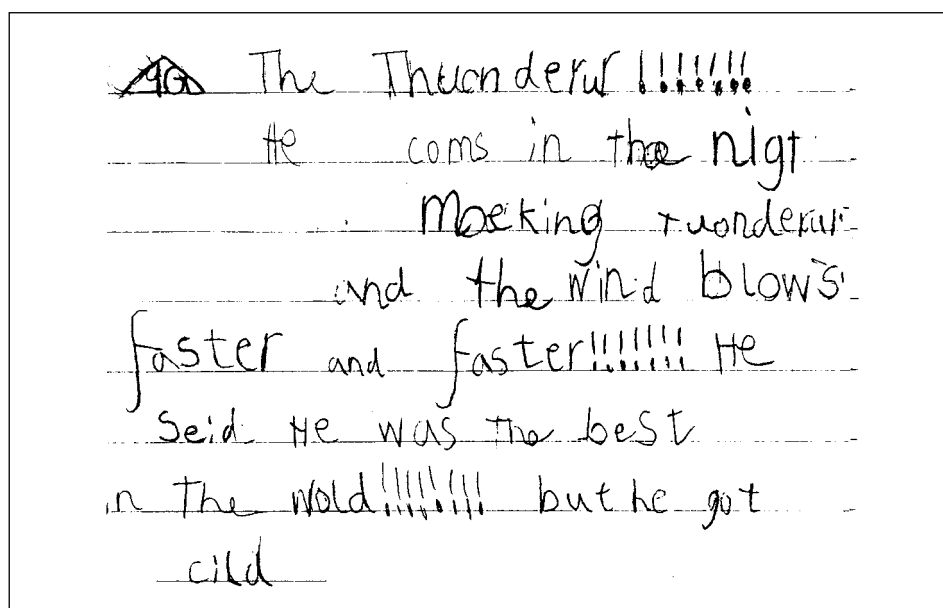 The Thuonderur !!!!!!!
He coms in the nigt
Moeking tuonderur
and the wind blows
faster and faster!!!!!!! He
Seid He was The best
in The Wold!!!!!!!! but he got
cild